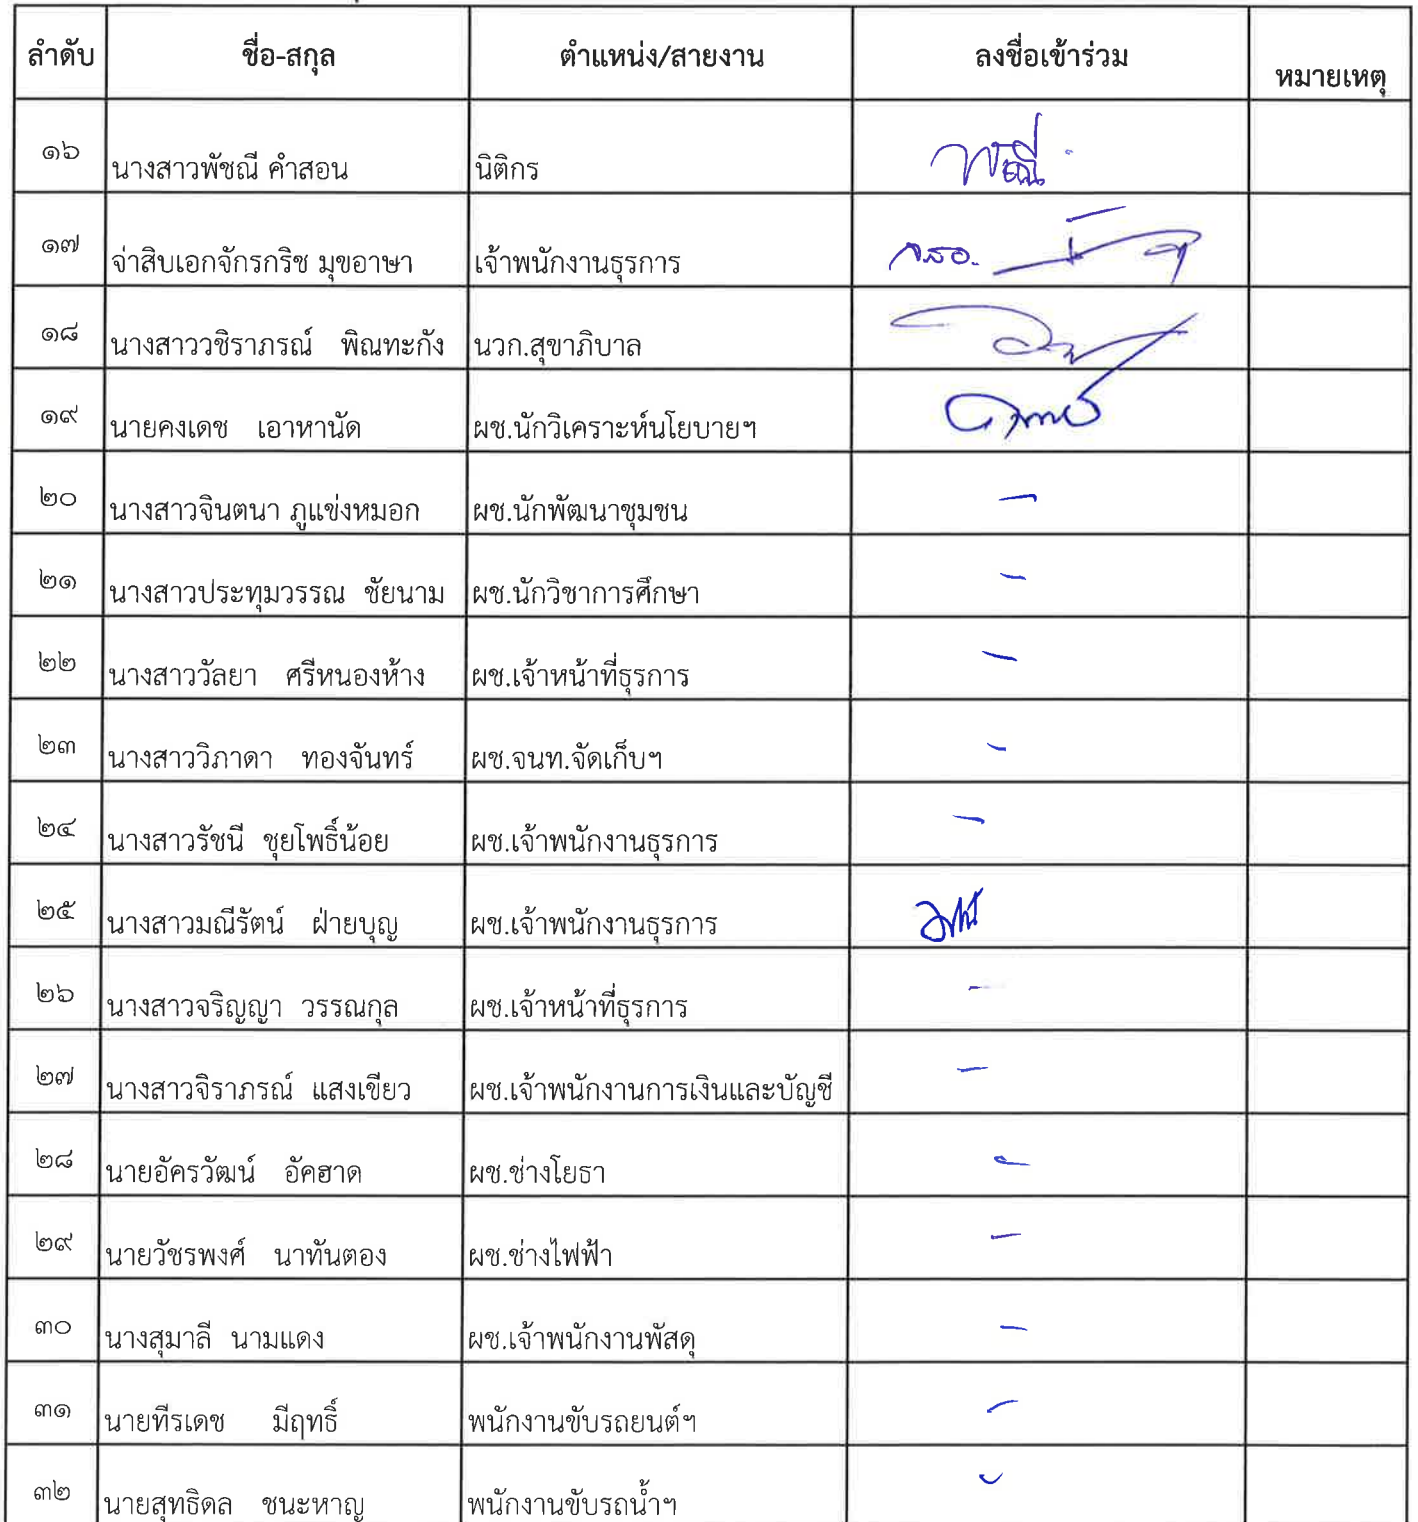 ลำดับ ชื่อ-สกุล ตำแหน่ง/สายงาน ลงชื่อเข้าร่วม หมายเหตุ
๑๖ นางสาวพัชณี คำสอน นิติกร พัชณี
๑๗ จ่าสิบเอกจักรกริช มุขอาษา เจ้าพนักงานธุรการ จ.ส.อ.
๑๘ นางสาววชิราภรณ์ พิณทะกัง นวก.สุขาภิบาล
๑๙ นายคงเดช เอาหานัด ผช.นักวิเคราะห์นโยบายฯ
๒๐ นางสาวจินตนา ภูแข่งหมอก ผช.นักพัฒนาชุมชน -
๒๑ นางสาวประทุมวรรณ ชัยนาม ผช.นักวิชาการศึกษา -
๒๒ นางสาววัลยา ศรีหนองห้าง ผช.เจ้าหน้าที่ธุรการ -
๒๓ นางสาววิภาดา ทองจันทร์ ผช.จนท.จัดเก็บฯ -
๒๔ นางสาวรัชนี ชุยโพธิ์น้อย ผช.เจ้าพนักงานธุรการ -
๒๕ นางสาวมณีรัตน์ ฝ่ายบุญ ผช.เจ้าพนักงานธุรการ
๒๖ นางสาวจริญญา วรรณกุล ผช.เจ้าหน้าที่ธุรการ -
๒๗ นางสาวจิราภรณ์ แสงเขียว ผช.เจ้าพนักงานการเงินและบัญชี -
๒๘ นายอัครวัฒน์ อัคฮาด ผช.ช่างโยธา -
๒๙ นายวัชรพงศ์ นาทันตอง ผช.ช่างไฟฟ้า -
๓๐ นางสุมาลี นามแดง ผช.เจ้าพนักงานพัสดุ -
๓๑ นายทีรเดช มีฤทธิ์ พนักงานขับรถยนต์ฯ -
๓๒ นายสุทธิดล ชนะหาญ พนักงานขับรถน้ำฯ -